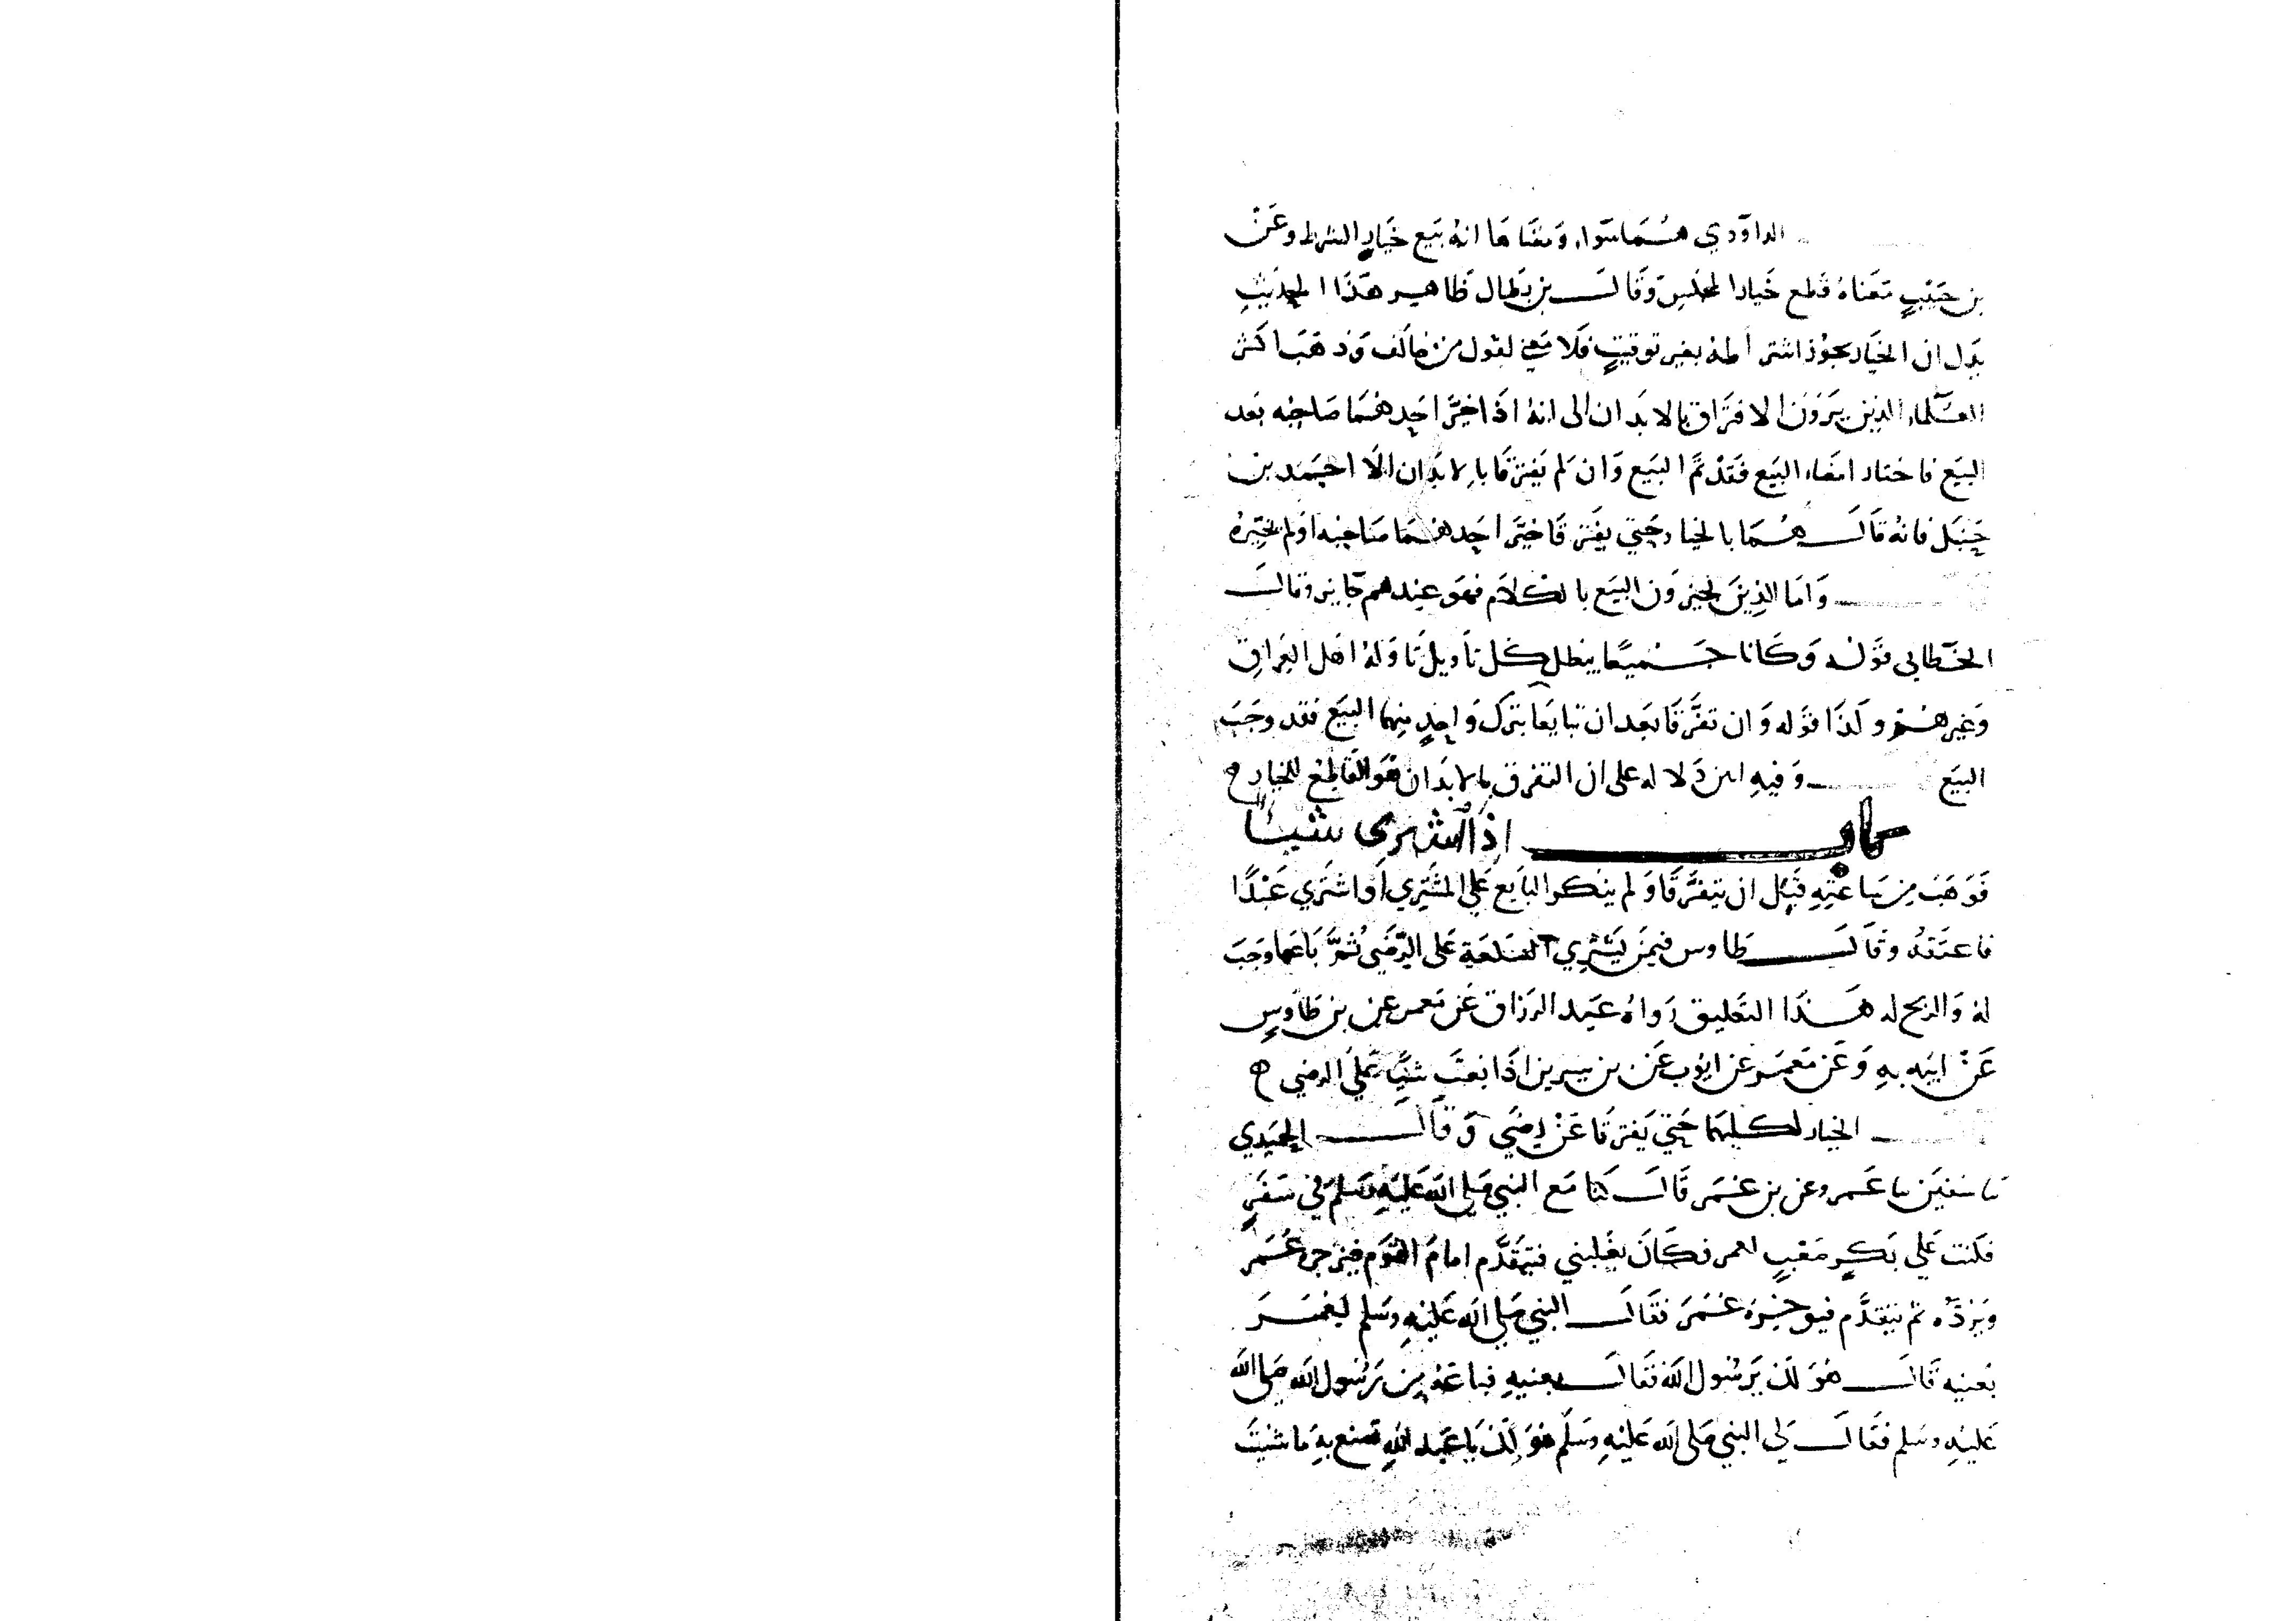 الداودي هما سوا ومعنا ها انه بيع خيار الشرط وعن
بن حبيب معناه قطع خيار المجلس وقال بن بطال ظاهر هذا الحديث
يدل ان الخيار يجوز اشتراطه بغير توقيت فلا معني لقول من خالف وذهب اكثر
العلماء الذين يرون الافتراق بالابدان الى انه اذا خير احدهما صاحبه بعد
البيع فاختار امضاء البيع فقد تم البيع وان لم يفترقا بالابدان الا احمد بن
حنبل فانه قال هما بالخيار حتي يفترقا خير احدهما صاحبه او لم يخيره
واما الذين يجيزون البيع بالكلام فهو عندهم جايز وقال
الخطابي قوله وكانا جميعا يبطل كل تاويل تاوله اهل العراق
وغيرهم وكذا قوله وان تفرقا بعد ان تبايعا بترك واحد منهما البيع فقد وجب
البيع وفيه ابين دلاله على ان التفرق بالابدان هو القاطع للخيار
باب اذا اشترى شيئا
فوهب من ساعته قبل ان يتفرقا ولم ينكر البايع علي المشتري او اشتري عبدا
فاعتقه وقال طاوس فيمن يشتري السلعة على الرضي ثم باعها وجبت
له والربح له هذا التعليق رواه عبد الرزاق عن معمر عن بن طاوس
عن ابيه به وعن معمر عن ايوب عن بن سيرين اذا بعت شيا علي الرضي
الخيار لكليهما حتي يفترقا عن رضي وقال الحميدي
ثنا سفين ثنا عمرو عن بن عمر قال كنا مع النبي صلي الله عليه وسلم في سفر
فكنت علي بكر صعب لعمر فكان يغلبني فيتقدم امام القوم فيزجره عمر
ويرده ثم يتقدم فيزجره عمر فقال النبي صلي الله عليه وسلم لعمر
بعنيه قال هو لك يرسول الله فقال بعنيه فباعه من رسول الله صلى الله
عليه وسلم فقال لي النبي صلى الله عليه وسلم هو لك يا عبد الله تصنع به ما شيت